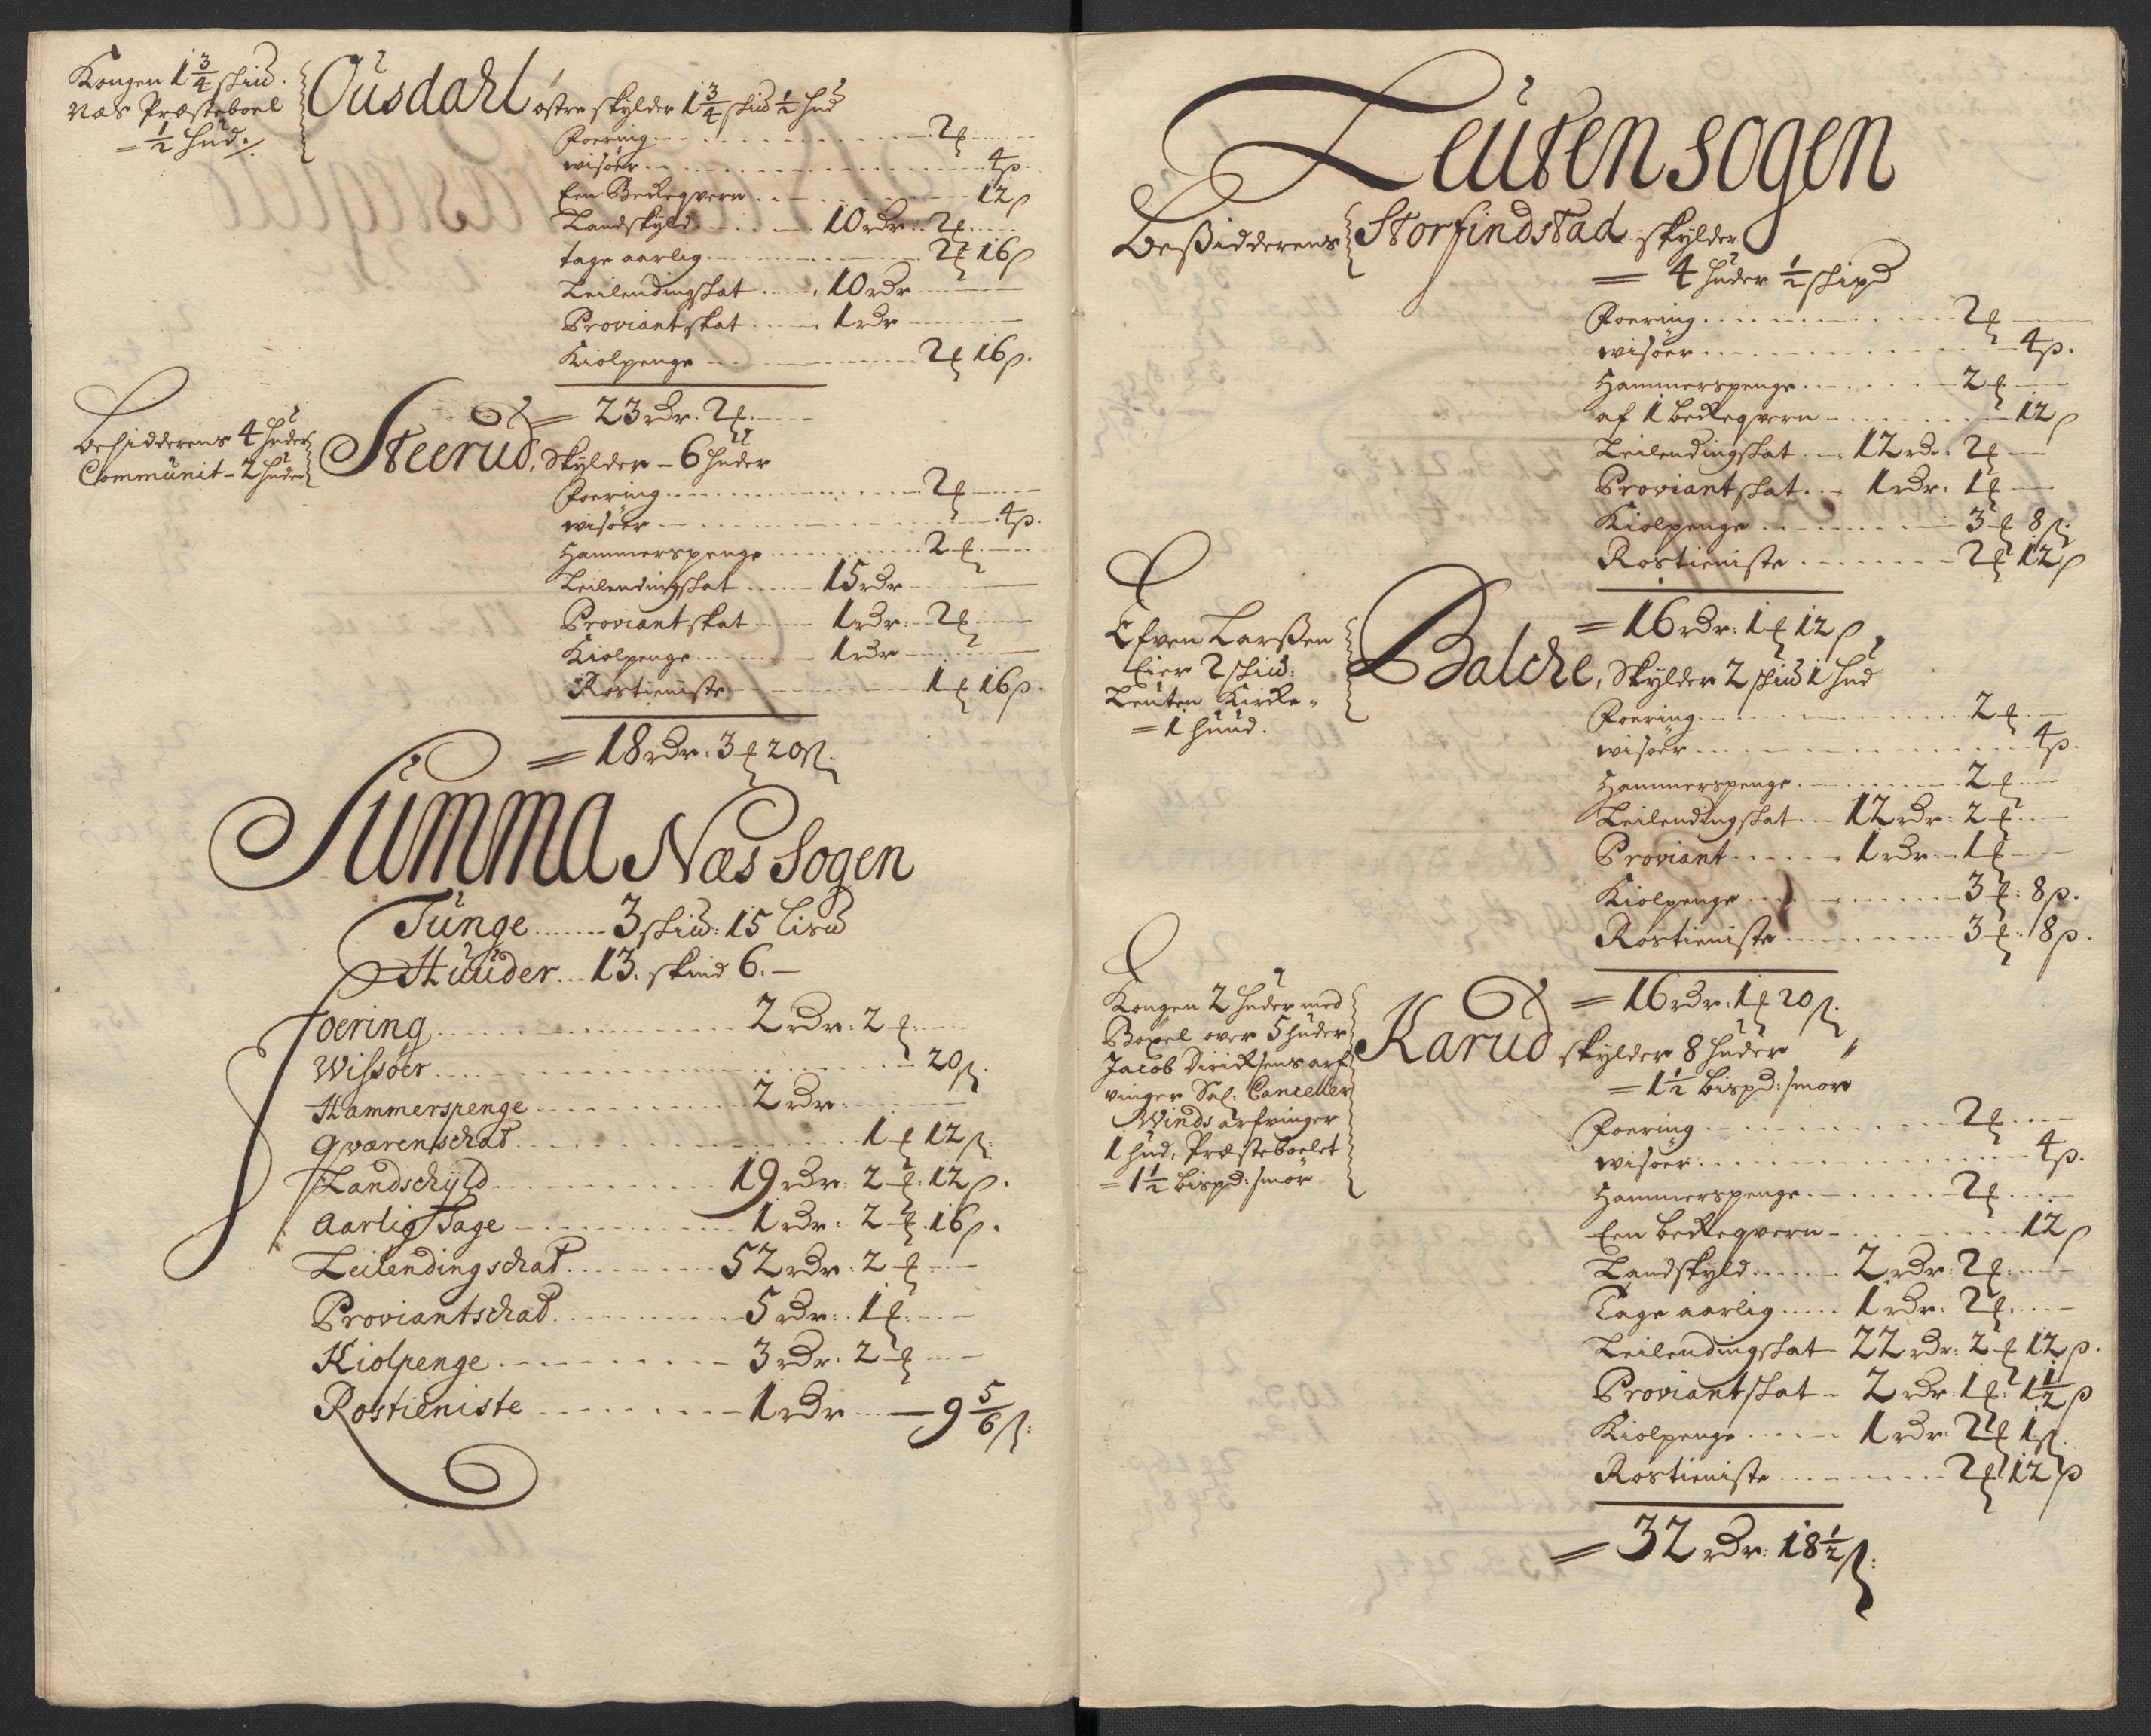 Kongen 1 3/4 skiud.
Næs Præsteboel
= 1/2 hud./.
Ousdahl østre skylder 1 3/4 skiud 1/2 hud
Foering 2 ℔
wisöer 4 ß.
Een Beckeqvern 12 ß
Landskyld 10 rdr: 2 ℔
tage aarlig 2 ℔ 16 ß
Leilendingskat 10 rdr
Proviantskat 1 rdr
Kiolpenge 2 ℔ 16 ß.
= 23 rdr. 2 ℔.
Besidderens 4 huder
Communit - 2 huder
Steerud, Skylder - 6 huder
Foering 2 ℔
wisöer 4 ß.
Hammerspenge 2 ℔.
Leilendingskat 15 rdr
Proviantskat 1 rdr. 2 ℔
Kiolpenge 1 rdr
Rostieniste 1 ℔ 16 ß.
= 18 rdr. 3 ℔ 20 ß.
Summa Næs Sogen
Tunge 3 skiud: 15 Lisud
Huuder 13. skind 6. -
Foering 2 rdr: 2 ℔
Wissöer 20 ß.
Hammerspenge 2 rdr
Qværenschat 1 ℔ 12 ß.
Landschyld 19 rdr: 2 ℔. 12 ß.
Aarlig Tage 1 rdr: 2 ℔. 16 ß.
Leilendingschat 52 rdr. 2 ℔
Proviantschat 5 rdr: 1 ℔
Kiolpenge 3 rdr. 2 ℔
Rostieniste 1 rdr - 9 5/6 ß:
Leuten sogen
Beßidderens Storfindstad skylder
= 4 huder 1/2 skipd
Foering 2 ℔
wisöer 4 ß.
Hammerspenge 2 ℔
af 1 beckeqvern 12 ß
Leilendingskat 12 rdr. 2 ℔
Proviantskat 1 rdr. 1 ℔
Kiolpenge 3 ℔ 8 ß.
Rostieniste 2 ℔ 12 ß
= 16 rdr: 1 ℔ 12 ß
Efven Larßen
Eier 2 skiud:
Leuten Kircke
= 1 huud.
Balche, Skylder 2 skiud 1 hud
Foering 2 ℔.
wisöer 4 ß.
Hammerspenge 2 ℔
Leilendingskat 12 rdr: 2 ℔.
Proviant 1 rdr 1 ℔
Kiolpenge 3 ℔: 8 ß.
Rostieniste 3 ℔: 8 ß.
= 16 rdr: 1 ℔ 20 ß.
Kongen 2 huder med
Boxel over 5 huder
Jacob Diricksens arf
vinger Sal: Canceller
Winds arfvinger
1 hud, Præsteboelet
= 1 1/2 bispd: smör
Karud skylder 8 huder
= 1 1/2 bispd: smör
Foering 2 ℔
wisöer 4 ß.
Hammerspenge 2 ℔
Een beckeqvern 12 ß
Landskyld 2 rdr: 2 ℔.
Tage aarlig 1 rdr: 2 ℔.
Leilendingskat 22 rdr: 2 ℔ 12 ß.
Proviantskat 2 rdr: 1 ℔: 1 1/2 ß
Kiolpenge 1 rdr 2 ℔ 1 ß.
Rostieniste 2 ℔ 12 ß
= 32 rdr: 18 1/2 ß: